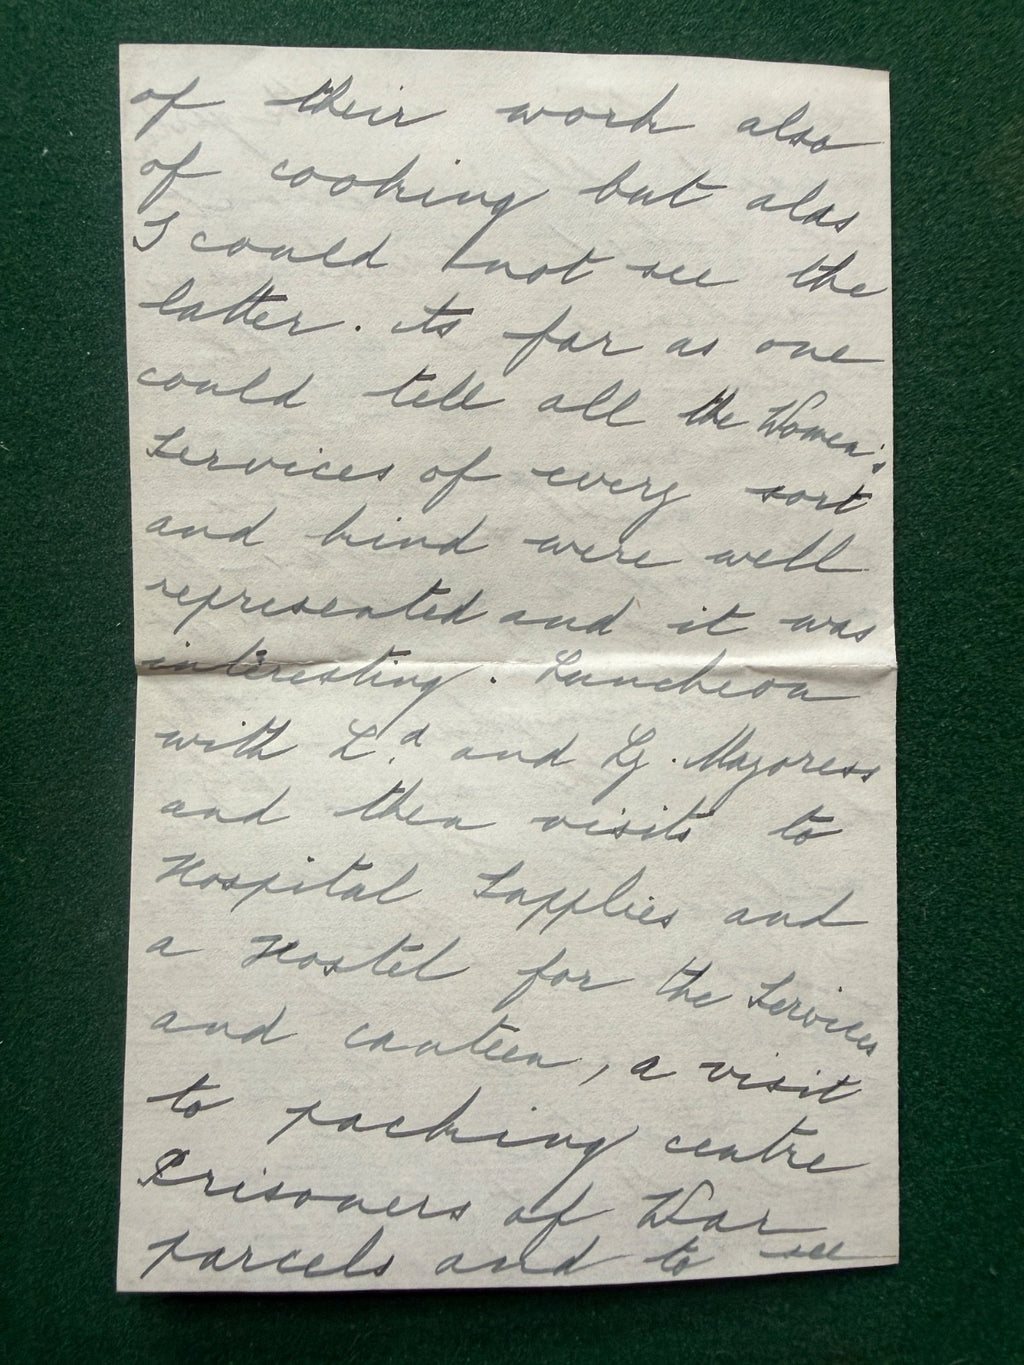 of their work also
of cooking but alas
I could not see the
latter. As far as one
could tell all the Women's
Services of every sort
and kind were well
represented and it was
interesting. Luncheon
with Ld. and Ly. Mayoress
and then visits to
Hospital Supplies and
a Hostel for the Services
and canteen, a visit
to packing centre
Prisoners of War
parcels and to see